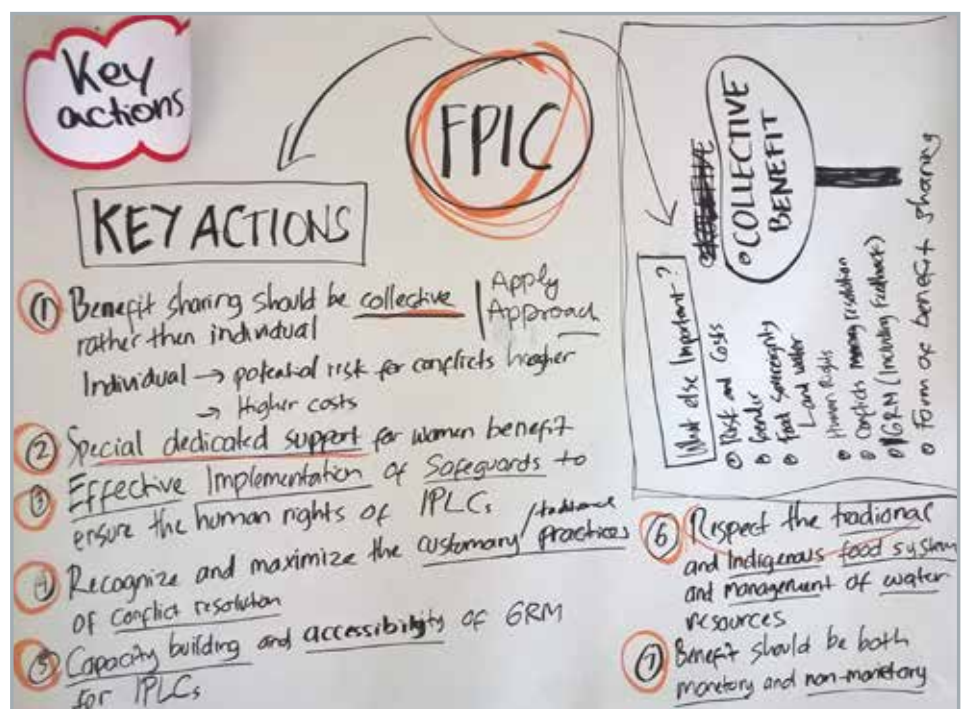 Key
actions
FPIC
KEY ACTIONS
① Benefit sharing should be collective
rather then individual
Apply
Approach
Individual → potential risk for conflicts higher
→ Higher costs
② Special dedicated support for women benefit
③ Effective Implementation of Safeguards to
ensure the human rights of IPLCs
④ Recognize and maximize the customary/traditional practices
of conflict resolution
⑤ Capacity building and accessibility of GRM
for IPLCs
What else Important?
COLLECTIVE
BENEFIT
Risk and Costs
Gender
Food Sovereignty
Land and water
Human Rights
Conflicts resolution
GRM (Including Feedback)
Form of benefit sharing
⑥ Respect the tradional
and Indigenous food system
and management of water
resources
⑦ Benefit should be both
monetary and non-monetary